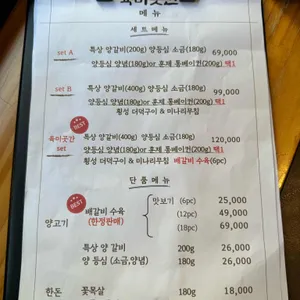 육미곳간
메뉴
세트메뉴
set A 특상 양갈비(200g) 양등심 소금(180g) 69,000
양등심 양념(180g)or 훈제 통베이컨(200g) 택1
set B 특상 양갈비(400g) 양등심 소금(180g) 99,000
양등심 양념(180g)or 훈제 통베이컨(200g) 택1
횡성 더덕구이 & 미나리무침
BEST
육미곳간 set 특상 양갈비(400g) 양등심 소금(180g) 120,000
양등심 양념(180g)or 훈제 통베이컨(200g) 택1
횡성 더덕구이 & 미나리무침 배갈비 수육(6pc)
단품메뉴
BEST
양고기 배갈비 수육 (한정판매) 맛보기 (6pc) 25,000
(12pc) 49,000
(18pc) 69,000
특상 양 갈비 200g 26,000
양 등심 (소금,양념) 180g 26,000
한돈 꽃목살 180g 18,000